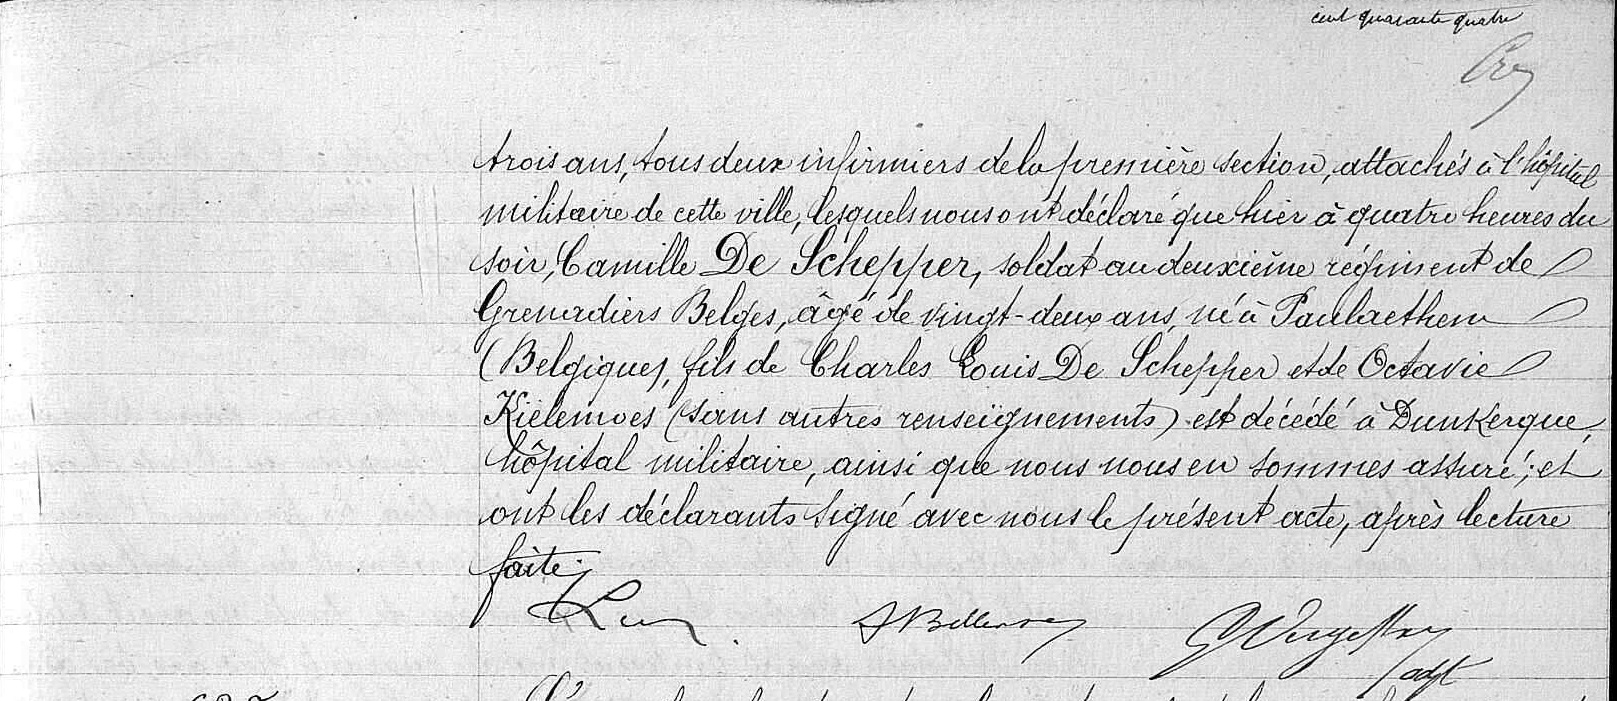 cent quarante quatre
trois ans, tous deux infirmiers de la première section, attachés à l'hôpital
militaire de cette ville, lesquels nous ont déclaré que hier à quatre heures du
soir, Camille De Schepper, soldat au deuxième régiment de
Grenadiers Belges, âgé de vingt-deux ans, né à Paulaethem
(Belgique), fils de Charles Louis De Schepper et de Octavie
Kielemoes (sans autres renseignements) est décédé à Dunkerque,
hôpital militaire, ainsi que nous nous en sommes assuré; et
ont les déclarants signé avec nous le présent acte, après lecture
faite.
adjt